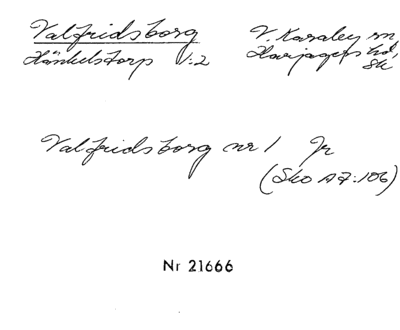 Valfridsborg V. Karaby sn
Hänkelstorp 1:2 Harjagers hd,
Sk
Valfridsborg nr 1 Jr
(Sko AZ:106)
Nr 21666